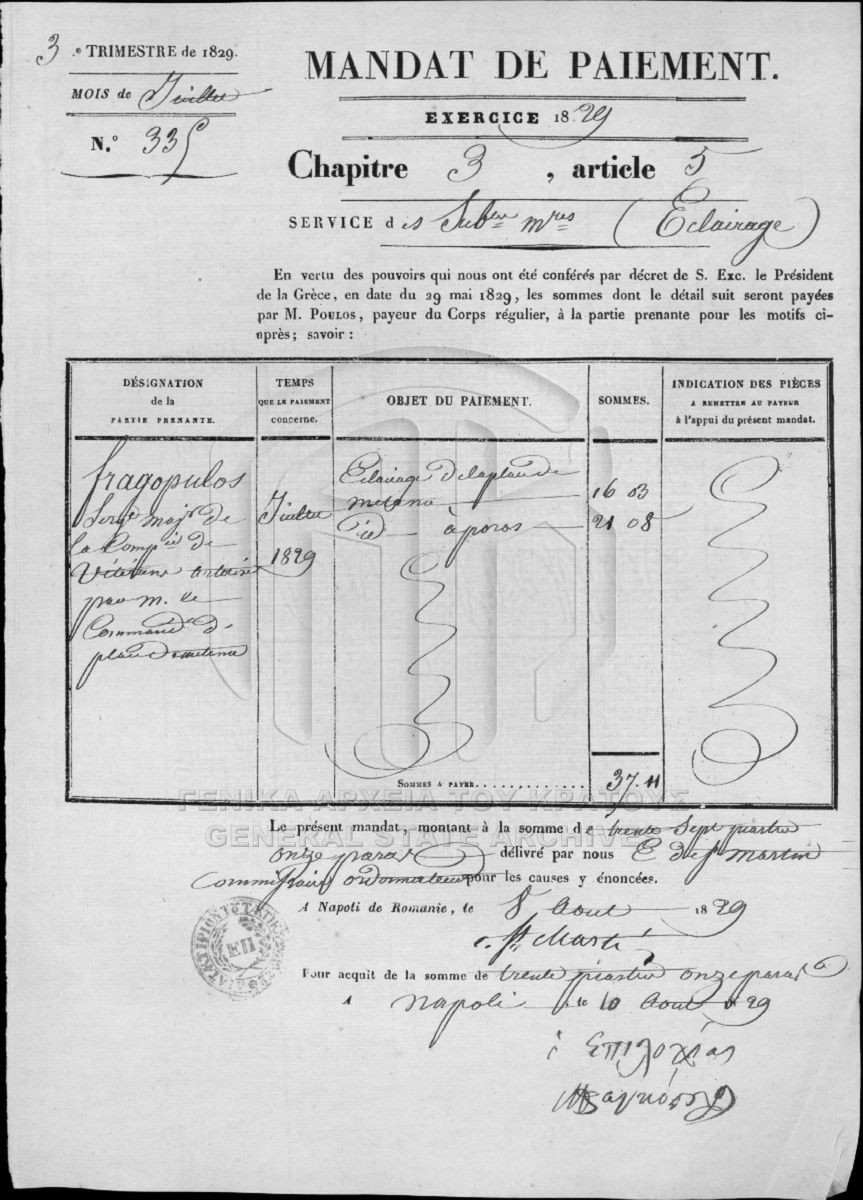 3.e TRIMESTRE de 1829.
MOIS de Juillet
N.° 335
MANDAT DE PAIEMENT.
EXERCICE 1829
Chapitre 3, article 5
SERVICE des Subces mres (Eclairage)
En vertu des pouvoirs qui nous ont été conférés par décret de S. Exc. le Président
de la Grèce, en date du 29 mai 1829, les sommes dont le détail suit seront payées
par M. POULOS, payeur du Corps régulier, à la partie prenante pour les motifs ci-
après; savoir :
DÉSIGNATION
de la
PARTIE PRENANTE.
TEMPS
QUE LE PAIEMENT
concerne.
OBJET DU PAIEMENT.
SOMMES.
INDICATION DES PIÈCES
A REMETTRE AU PAYEUR
à l'appui du présent mandat.
fragopulos
Sergt majr de
la Compie de
par m. le
Command d
Juillet
1829
Eclairage de la place de
16 03
à poros
21 08
SOMMES A PAYER
37.11
Le présent mandat, montant à la somme de trente sept piastres
onze paras délivré par nous E de St Martin
Commissaire ordonnateur pour les causes y énoncées.
A Napoli de Romanie, le 8 Aout 1829
St Martin
Pour acquit de la somme de trente piastres onze paras
A Napoli le 10 Aout 1829
ὁ Επιλοχίας
ΓΕΝΙΚΑ ΑΡΧΕΙΑ ΤΟΥ ΚΡΑΤΟΥΣ
GENERAL STATE ARCHIVES